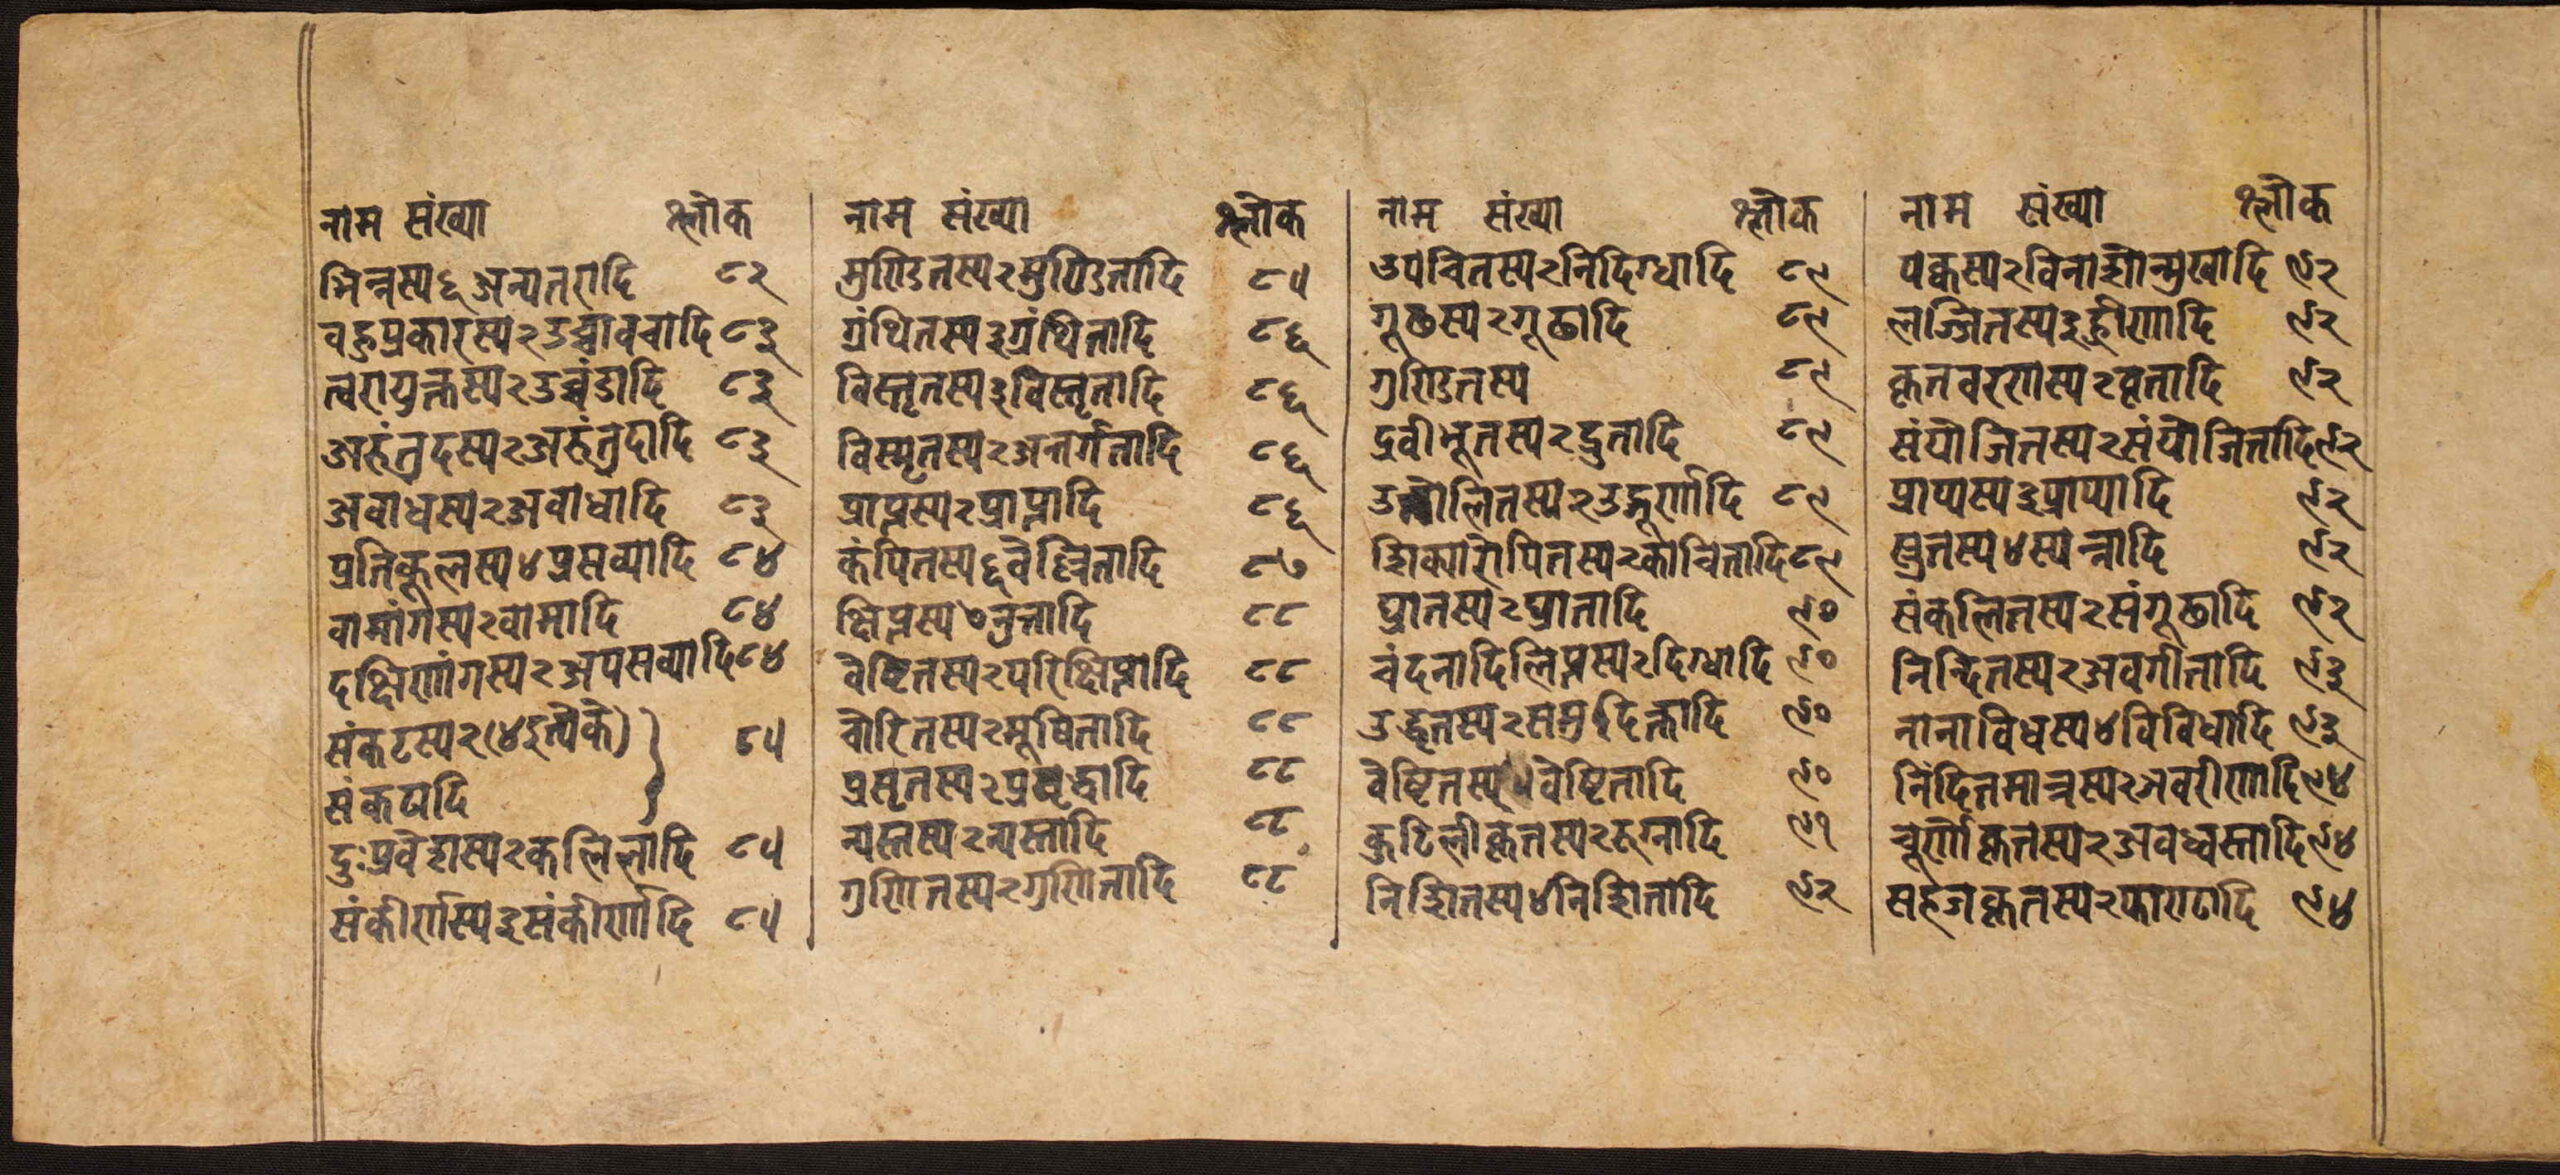 नाम संख्या श्लोक
भिन्नस्य ६ अन्यतरादि ८२
वहुप्रकारस्य २ उच्चावचादि ८३
त्वरायुक्तस्य २ उच्चंडादि ८३
अरुंतुदस्य २ अरुंतुदादि ८३
अवाधस्य २ अवाधादि ८३
प्रतिकूलस्य ४ प्रसव्यादि ८४
वामांगस्य २ वामादि ८४
दक्षिणांगस्य २ अपसव्यादि ८४
संकटस्य २ (४ इत्येके) ८५
संकटादि
दुःप्रवेशस्य २ कलिलादि ८५
संकीर्णस्य ३ संकीर्णादि ८५
नाम संख्या श्लोक
मुण्डितस्य २ मुण्डितादि ८५
ग्रंथितस्य ३ ग्रंथितादि ८६
विस्तृतस्य ३ विस्तृतादि ८६
विस्मृतस्य २ अन्तर्गतादि ८६
प्राप्तस्य २ प्राप्तादि ८६
कंपितस्य ६ वेल्लितादि ८७
क्षिप्तस्य ७ नुन्नादि ८८
वेष्टितस्य २ परिक्षिप्तादि ८८
चोरितस्य २ मूषितादि ८८
प्रसृतस्य २ प्रवृद्धादि ८८
न्यस्तस्य २ न्यस्तादि ८८
गुणितस्य २ गुणितादि ८८
नाम संख्या श्लोक
उपचितस्य २ निदिग्धादि ८९
गूढस्य २ गूढादि ८९
गुण्डितस्य ८९
द्रवीभूतस्य २ द्रुतादि ८९
उत्तोलितस्य २ उद्गूर्णादि ८९
शिक्यारोपितस्य २ काचितादि ८९
घ्रातस्य २ घ्रातादि ९०
चंदनादिलिप्तस्य २ दिग्धादि ९०
उद्धृतस्य २ समुदक्तादि ९०
वेष्टितस्य ५ वेष्टितादि ९०
कुटिलीकृतस्य २ रुग्नादि ९१
निशितस्य ४ निशितादि ९२
नाम संख्या श्लोक
पक्वस्य २ विनाशोन्मुखादि ९२
लज्जितस्य ३ ह्रीणादि ९२
कृतवरणस्य २ वृतादि ९२
संयोजितस्य २ संयोजितादि ९२
प्राप्यस्य ३ प्राप्यादि ९२
स्रुतस्य ४ स्यन्नादि ९२
संकलितस्य २ संगूढादि ९२
निन्दितस्य २ अवगीतादि ९३
नानाविधस्य ४ विविधादि ९३
निंदितमात्रस्य २ अवरीणादि ९४
चूर्णीकृतस्य २ अवध्वस्तादि ९४
सहजकृतस्य २ फाण्टादि ९४